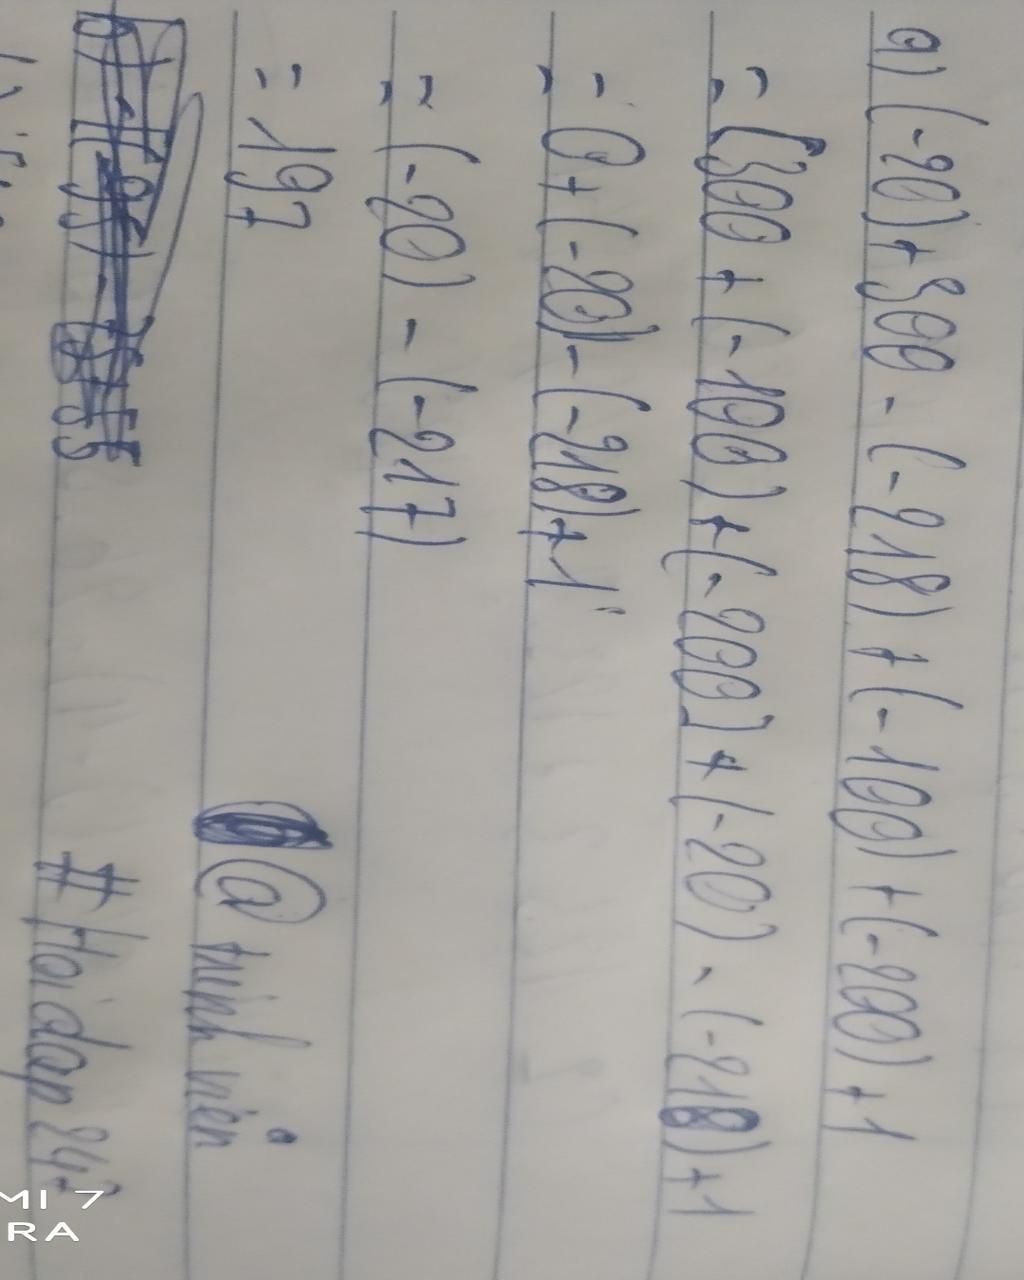 a) (-20) + 300 - (-218) + (-100) + (-200) + 1
= [300 + (-100) + (-200] + (-20) - (-218) + 1
= 0 + (-20) - (-218) + 1
= (-20) - (-217)
= 197
@ minh viên
# Hoi dap 247
MI 7
RA